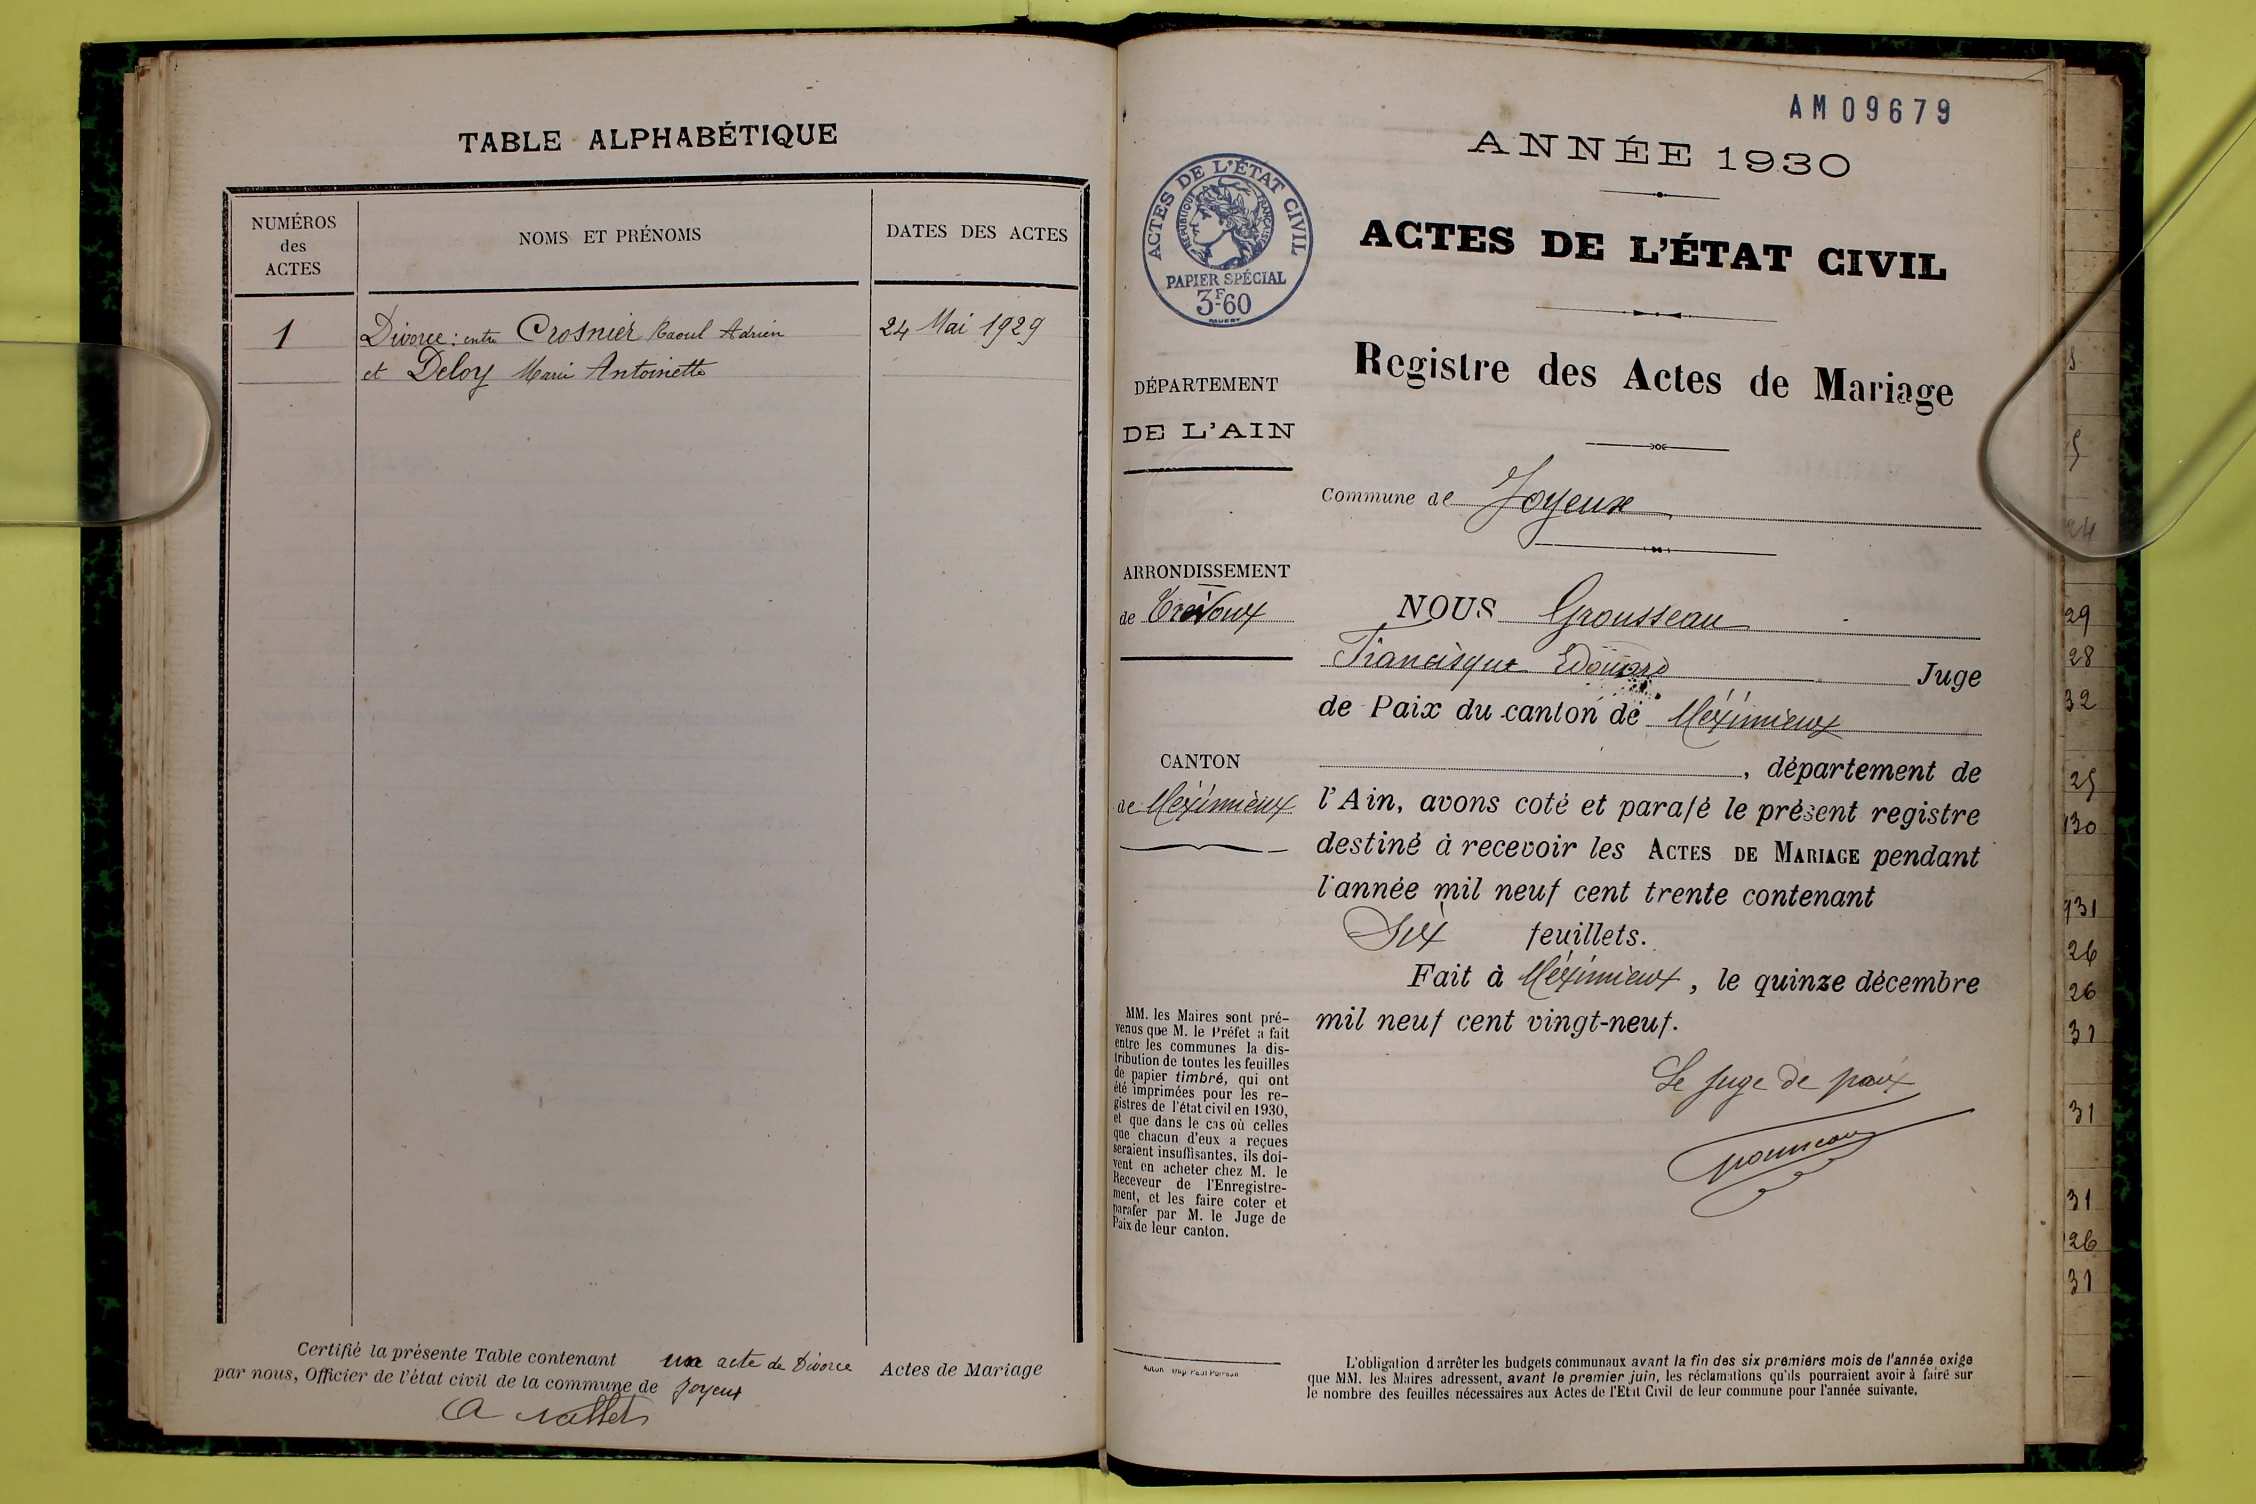 TABLE ALPHABÉTIQUE
NUMÉROS
des
ACTES
NOMS ET PRÉNOMS
DATES DES ACTES
1
Divorce : entre Crosnier Raoul Adrien
24 Mai 1929
et Deloy Marie Antoinette
Certifié la présente Table contenant un acte de Divorce Actes de Mariage
par nous, Officier de l'état civil de la commune de Joyeux
AM09679
ANNÉE 1930
ACTES DE L'ÉTAT CIVIL
RÉPUBLIQUE FRANÇAISE
PAPIER SPÉCIAL
3F60
ACTES DE L'ÉTAT CIVIL
Registre des Actes de Mariage
DÉPARTEMENT
DE L'AIN
Commune de Joyeux
ARRONDISSEMENT
de Trévoux
CANTON
de Méximieux
NOUS Grousseau
Francisque Edouard Juge
de Paix du canton de Méximieux
, département de
l'Ain, avons coté et parafé le présent registre
destiné à recevoir les ACTES DE MARIAGE pendant
l'année mil neuf cent trente contenant
Six feuillets.
Fait à Méximieux, le quinze décembre
mil neuf cent vingt-neuf.
Le Juge de paix
Grousseau
MM. les Maires sont pré-
venus que M. le Préfet a fait
entre les communes la dis-
tribution de toutes les feuilles
de papier timbré, qui ont
été imprimées pour les re-
gistres de l'état civil en 1930,
et que dans le cas où celles
que chacun d'eux a reçues
seraient insuffisantes, ils doi-
vent en acheter chez M. le
Receveur de l'Enregistre-
ment, et les faire coter et
parafer par M. le Juge de
Paix de leur canton.
L'obligation d'arrêter les budgets communaux avant la fin des six premiers mois de l'année exige
que MM. les Maires adressent, avant le premier juin, les réclamations qu'ils pourraient avoir à faire sur
le nombre des feuilles nécessaires aux Actes de l'Etat Civil de leur commune pour l'année suivante.
29
28
32
25
130
931
26
26
31
31
31
26
31